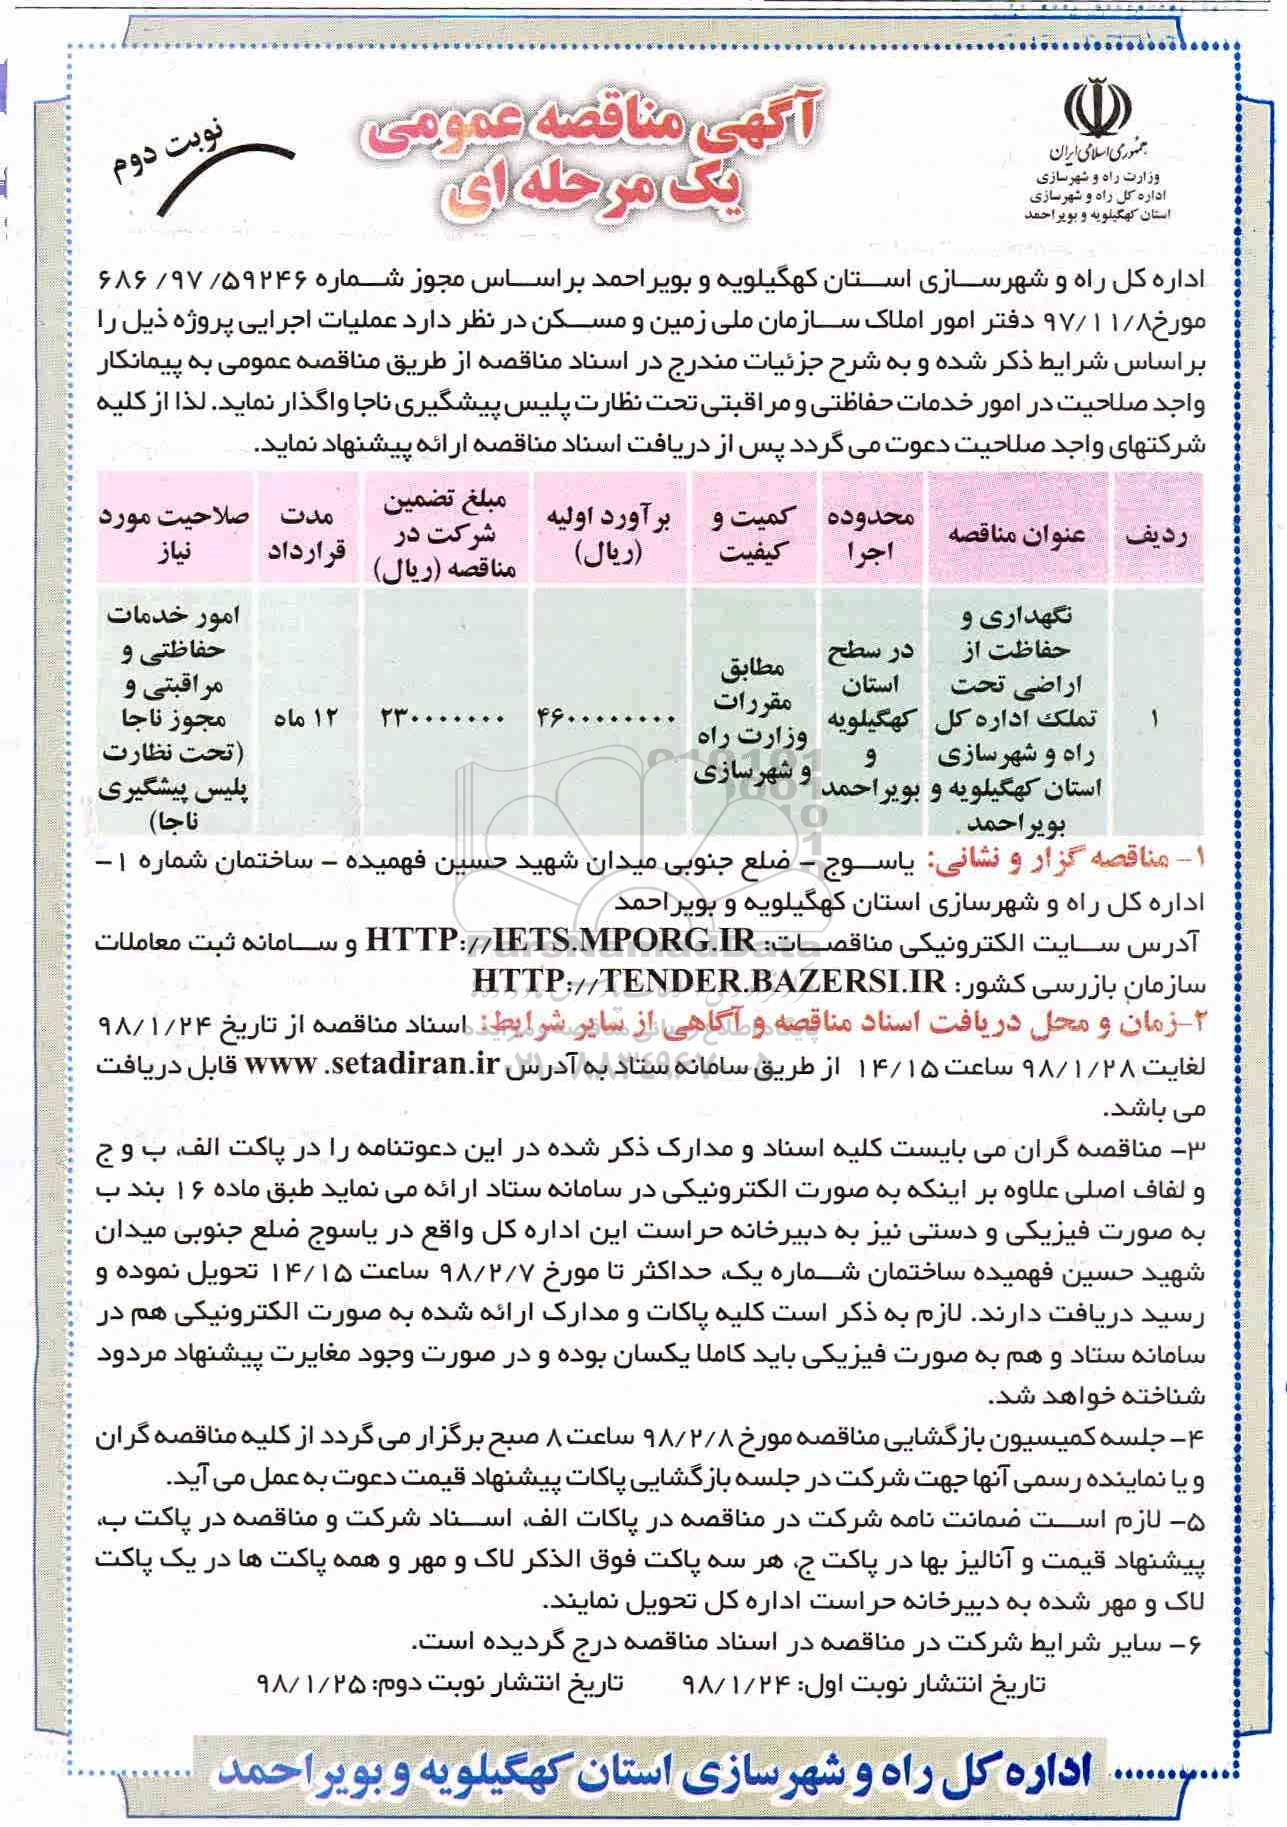 جمهوری اسلامی ایران
وزارت راه و شهرسازی
اداره کل راه و شهرسازی
استان کهگیلویه و بویراحمد
آگهی مناقصه عمومی
یک مرحله ای
نوبت دوم
اداره کل راه و شهرسازی استان کهگیلویه و بویراحمد براساس مجوز شماره ۶۸۶/۹۷/۵۹۲۴۶
مورخ۹۷/۱۱/۸ دفتر امور املاک سازمان ملی زمین و مسکن در نظر دارد عملیات اجرایی پروژه ذیل را
براساس شرایط ذکر شده و به شرح جزئیات مندرج در اسناد مناقصه از طریق مناقصه عمومی به پیمانکار
واجد صلاحیت در امور خدمات حفاظتی و مراقبتی تحت نظارت پلیس پیشگیری ناجا واگذار نماید. لذا از کلیه
شرکتهای واجد صلاحیت دعوت می گردد پس از دریافت اسناد مناقصه ارائه پیشنهاد نماید.
ردیف
عنوان مناقصه
محدوده
اجرا
کمیت و
کیفیت
برآورد اولیه
(ریال)
مبلغ تضمین
شرکت در
مناقصه (ریال)
مدت
قرارداد
صلاحیت مورد
نیاز
۱
نگهداری و
حفاظت از
اراضی تحت
تملک اداره کل
راه و شهرسازی
استان کهگیلویه و
بویراحمد
در سطح
استان
کهگیلویه
و
بویراحمد
مطابق
مقررات
وزارت راه
و شهرسازی
۴۶۰۰۰۰۰۰۰۰
۲۳۰۰۰۰۰۰۰
۱۲ ماه
امور خدمات
حفاظتی و
مراقبتی و
مجوز ناجا
(تحت نظارت
پلیس پیشگیری
ناجا)
۱- مناقصه گزار و نشانی: یاسوج - ضلع جنوبی میدان شهید حسین فهمیده - ساختمان شماره ۱-
اداره کل راه و شهرسازی استان کهگیلویه و بویراحمد
آدرس سایت الکترونیکی مناقصات: HTTP://IETS.MPORG.IR و سامانه ثبت معاملات
سازمان بازرسی کشور: HTTP://TENDER.BAZERSI.IR
۲-زمان و محل دریافت اسناد مناقصه و آگاهی از سایر شرایط: اسناد مناقصه از تاریخ ۹۸/۱/۲۴
لغایت ۹۸/۱/۲۸ ساعت ۱۴/۱۵ از طریق سامانه ستاد به آدرس www .setadiran.ir قابل دریافت
می باشد.
۳- مناقصه گران می بایست کلیه اسناد و مدارک ذکر شده در این دعوتنامه را در پاکت الف، ب و ج
و لفاف اصلی علاوه بر اینکه به صورت الکترونیکی در سامانه ستاد ارائه می نماید طبق ماده ۱۶ بند ب
به صورت فیزیکی و دستی نیز به دبیرخانه حراست این اداره کل واقع در یاسوج ضلع جنوبی میدان
شهید حسین فهمیده ساختمان شماره یک، حداکثر تا مورخ ۹۸/۲/۷ ساعت ۱۴/۱۵ تحویل نموده و
رسید دریافت دارند. لازم به ذکر است کلیه پاکات و مدارک ارائه شده به صورت الکترونیکی هم در
سامانه ستاد و هم به صورت فیزیکی باید کاملا یکسان بوده و در صورت وجود مغایرت پیشنهاد مردود
شناخته خواهد شد.
۴- جلسه کمیسیون بازگشایی مناقصه مورخ ۹۸/۲/۸ ساعت ۸ صبح برگزار می گردد از کلیه مناقصه گران
و یا نماینده رسمی آنها جهت شرکت در جلسه بازگشایی پاکات پیشنهاد قیمت دعوت به عمل می آید.
۵- لازم است ضمانت نامه شرکت در مناقصه در پاکات الف، اسناد شرکت و مناقصه در پاکت ب،
پیشنهاد قیمت و آنالیز بها در پاکت ج، هر سه پاکت فوق الذکر لاک و مهر و همه پاکت ها در یک پاکت
لاک و مهر شده به دبیرخانه حراست اداره کل تحویل نمایند.
۶- سایر شرایط شرکت در مناقصه در اسناد مناقصه درج گردیده است.
تاریخ انتشار نوبت اول: ۹۸/۱/۲۴ تاریخ انتشار نوبت دوم: ۹۸/۱/۲۵
اداره کل راه و شهرسازی استان کهگیلویه و بویراحمد
ParsNamadData